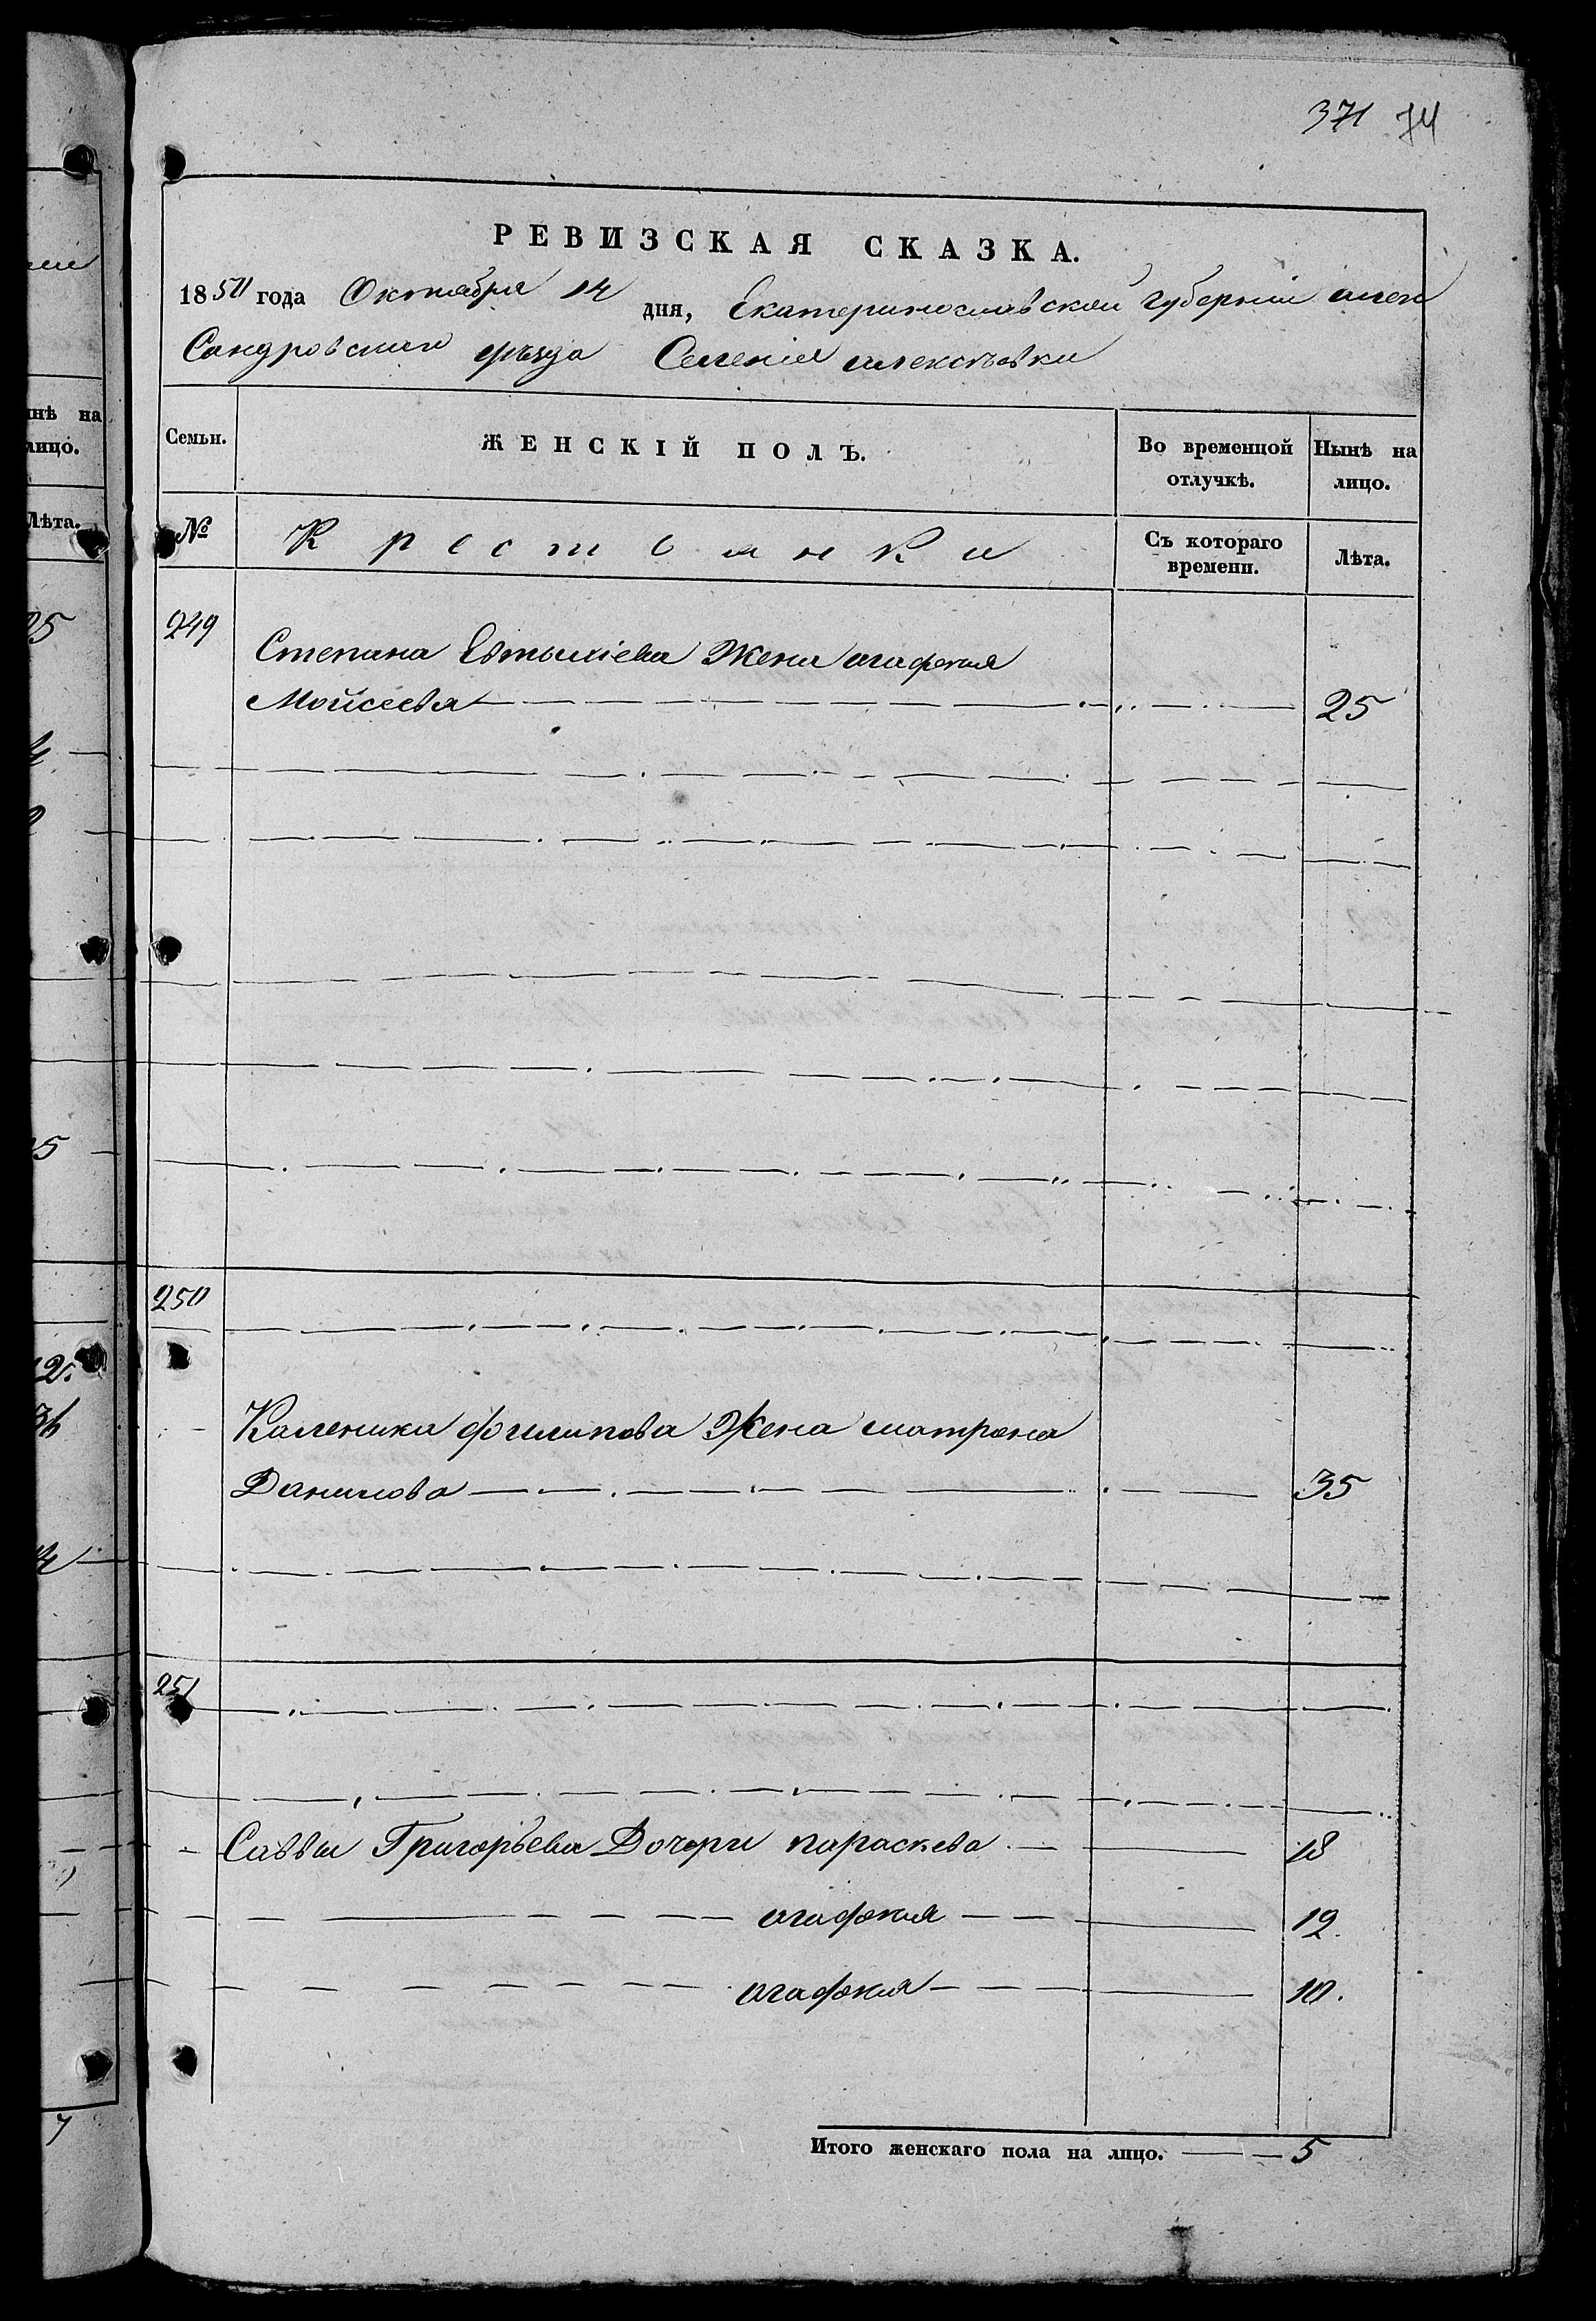 371 74
РЕВИЗСКАЯ СКАЗКА.
1850 года Октября 14 дня, Екатеринославской губерніи алек
Сандровскаго уѣзда Селенія алексѣевки
Семьи. ЖЕНСКІЙ ПОЛЪ. Во временной отлучкѣ. Нынѣ на лицо.
№ Крестьянки Съ котораго времени. Лѣта.
249
Степана Евтыхіева Жена агафия
Мойсеева 25
250
Каленика филипова Жена матрона
Данилова 35
251
Саввы Григорьева Дочери параскева 18
агафия 12
агафия 10.
Итого женскаго пола на лицо. 5